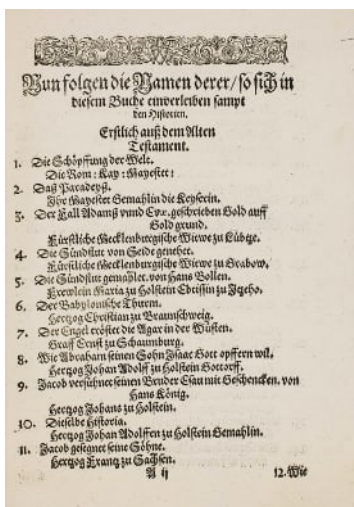 Nun folgen die Namen derer/ so sich in
diesem Buche einverleiben sampt
den Historien.
Erstlich auß dem Alten
Testament.
1. Die Schöpffung der Welt.
Die Röm: Kay: Mayestet:
2. Daß Paradeyß.
Ihr Mayestet Gemahlin die Keyserin.
3. Der Fall Adamß vnnd Evæ, geschrieben Gold auff
Gold grund.
Fürstliche Mecklenburgische Witwe zu Lübtze.
4. Die Sündflut von Seide genehet.
Fürstliche Mecklenburgische Witwe zu Grabow.
5. Die Sündflut gemahlet, von Hans Bollen.
Frewlein Maria zu Holstein Ebtissin zu Itzeho.
6. Der Babylonische Thurm.
Hertzog Christian zu Braunschweig.
7. Der Engel tröstet die Agar in der Wüsten.
Graff Ernst zu Schaumburg.
8. Wie Abraham seinen Sohn Isaac Gott opffern wil.
Hertzog Johan Adolff zu Holstein Gottorff.
9. Jacob versühnet seinen Bruder Esau mit Geschencken, von
Hans König.
Hertzog Johans zu Holstein.
10. Dieselbe Historia.
Hertzog Johan Adolffen zu Holstein Gemahlin.
11. Jacob gesegnet seine Söhne.
Hertzog Frantz zu Sachsen.
A ij 12. Wie